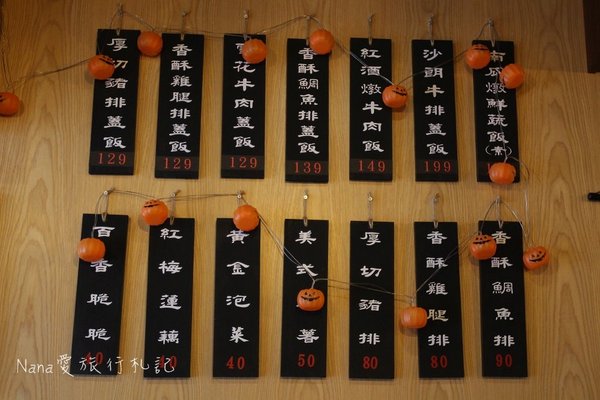 厚切豬排蓋飯
129
香酥雞腿排蓋飯
129
花牛肉蓋飯
129
香酥鯛魚排蓋飯
139
紅酒燉牛肉飯
149
沙朗牛排蓋飯
199
南瓜燉鮮蔬飯(素)
百香脆脆
40
紅梅蓮藕
40
黃金泡菜
40
美式薯
50
厚切豬排
80
香酥雞腿排
80
香酥鯛魚排
90
Nana愛旅行札記